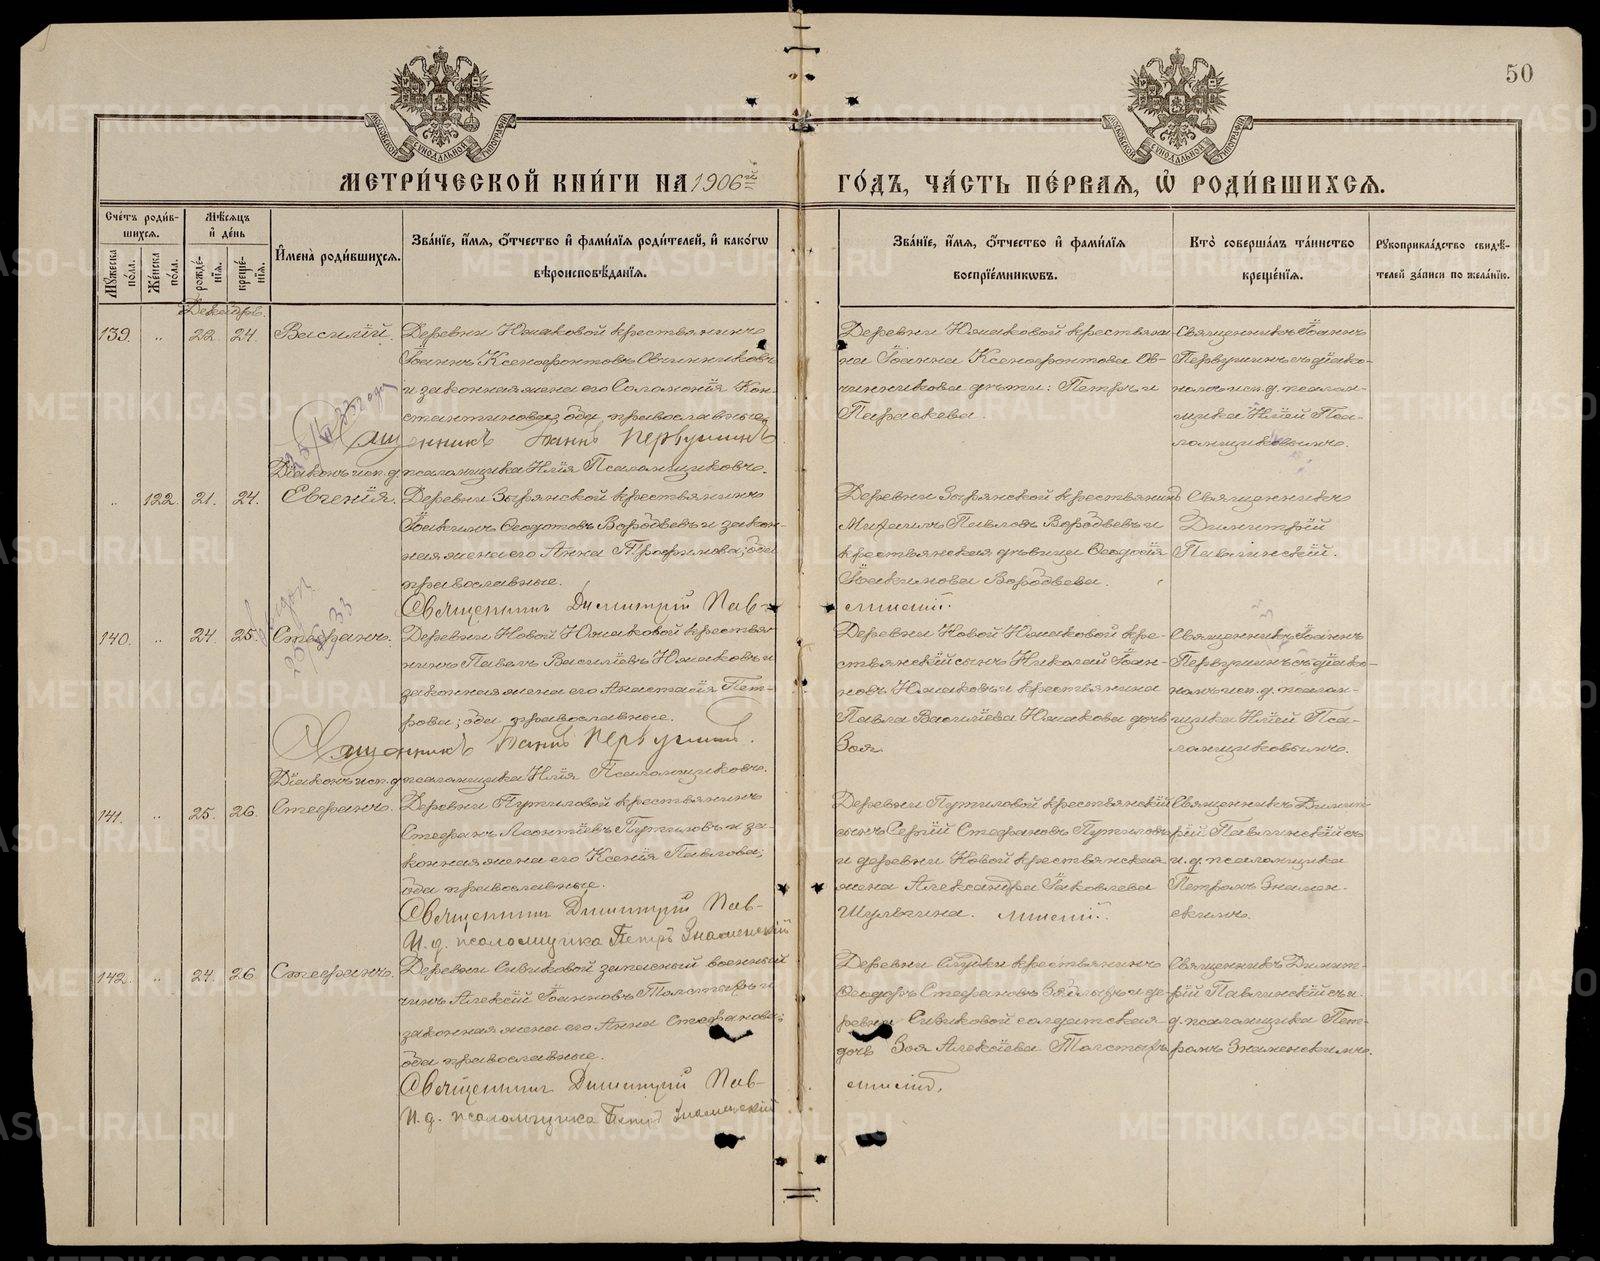 50
МОСКОВСКОЙ СѴНОДАЛЬНОЙ ТИПОГРАФІИ
МОСКОВСКОЙ СѴНОДАЛЬНОЙ ТИПОГРАФІИ
МЕТРИ́ЧЕСКОЙ КНИ́ГИ НА 1906й ГО́ДЪ, ЧА́СТЬ ПЕ́РВАЯ, Ѡ҆ РОДИ́ВШИХСѦ.
Сче́тъ роди́вшихсѧ.
Мꙋ́жеска по́ла.
Же́нска по́ла.
Мѣ́сѧцъ и҆ де́нь
рожде́нїѧ.
креще́нїѧ.
И҆мена̀ роди́вшихсѧ.
Зва́нїе, и҆́мѧ, ѻ҆́тчество и҆ фами́лїѧ роди́телей, и҆ како́гѡ вѣроисповѣ́данїѧ.
Зва́нїе, и҆́мѧ, ѻ҆́тчество и҆ фами́лїѧ воспрїе́мникѡвъ.
Кто̀ соверша́лъ та́инство креще́нїѧ.
Рꙋкоприкла́дство свидѣ́телей за́писи по жела́нїю.
Декабрь.
139. „ 22. 24. Василій.
Деревни Южаковой крестьянинъ
Іоаннъ Ксенофонтовъ Овчинниковъ
и законная жена его Соломонія Кон-
стантиновна, оба православные.
Священникъ Іоаннъ Первушинъ
Діаконъ и п. д. псаломщика Илія Псаломщиковъ.
Деревни Южаковой крестьяни-
на Іоанна Ксенофонтова Ов-
чинникова дѣти: Петръ и
Параскева.
Священникъ Іоаннъ
Первушинъ съ діако-
номъ исп. д. псалом-
щика Иліей Пса-
ломщиковымъ.
„ 122. 21. 24. Евгенія.
Деревни Зырянской крестьянинъ
Іоакимъ Ѳедотовъ Воробьевъ и закон-
ная жена его Анна Трофимова; оба
православные.
Священникъ Димитрій Пав-
линскій.
Деревни Зырянской крестьянинъ
Михаилъ Павловъ Воробьевъ и
крестьянская дѣвица Ѳеодосія
Іоакимова Воробьева.
Священникъ
Димитрій
Павлинскій.
140. „ 24. 25. Стефанъ.
Деревни Новой Южаковой крестья-
нинъ Павелъ Василіевъ Южаковъ и
законная жена его Анастасія Пет-
рова; оба православные.
Священникъ Іоаннъ Первушинъ.
Діаконъ исп. д. псаломщика Илія Псаломщиковъ.
Деревни Новой Южаковой кре-
стьянскій сынъ Николай Іоан-
новъ Южаковъ и крестьянина
Павла Василіева Южакова дочь
Зоя.
Священникъ Іоаннъ
Первушинъ съ діако-
номъ исп. д. псалом-
щика Иліей Пса-
ломщиковымъ.
141. „ 25. 26. Стефанъ.
Деревни Путиловой крестьянинъ
Стефанъ Леонтіевъ Путиловъ и за-
конная жена его Ксенія Павлова;
оба православные.
Священникъ Димитрій Пав-
линскій.
И. д. псаломщика Петръ Знаменскій
Деревни Путиловой крестьянскій
сынъ Сергій Стефановъ Путиловъ
и деревни Новой крестьянская
жена Александра Іаковлева
Шульгина.
Священникъ Димит-
рій Павлинскій съ
и. д. псаломщика
Петромъ Знамен-
скимъ.
142. „ 24. 26. Стефанъ.
Деревни Сивковой запасный военный
чинъ Алексій Іоанновъ Толстыхъ и
законная жена его Анна Стефанова;
оба православные.
Священникъ Димитрій Пав-
линскій.
И. д. псаломщика Петръ Знаменскій
Деревни Слудки крестьянинъ
Ѳеодоръ Стефановъ и де-
ревни Сивковой солдатская
дочь Зоя Алексіева Толстыхъ
Священникъ Димит-
рій Павлинскій съ и.
д. псаломщика Пет-
ромъ Знаменскимъ.
METRIKI.GASO-URAL.RU